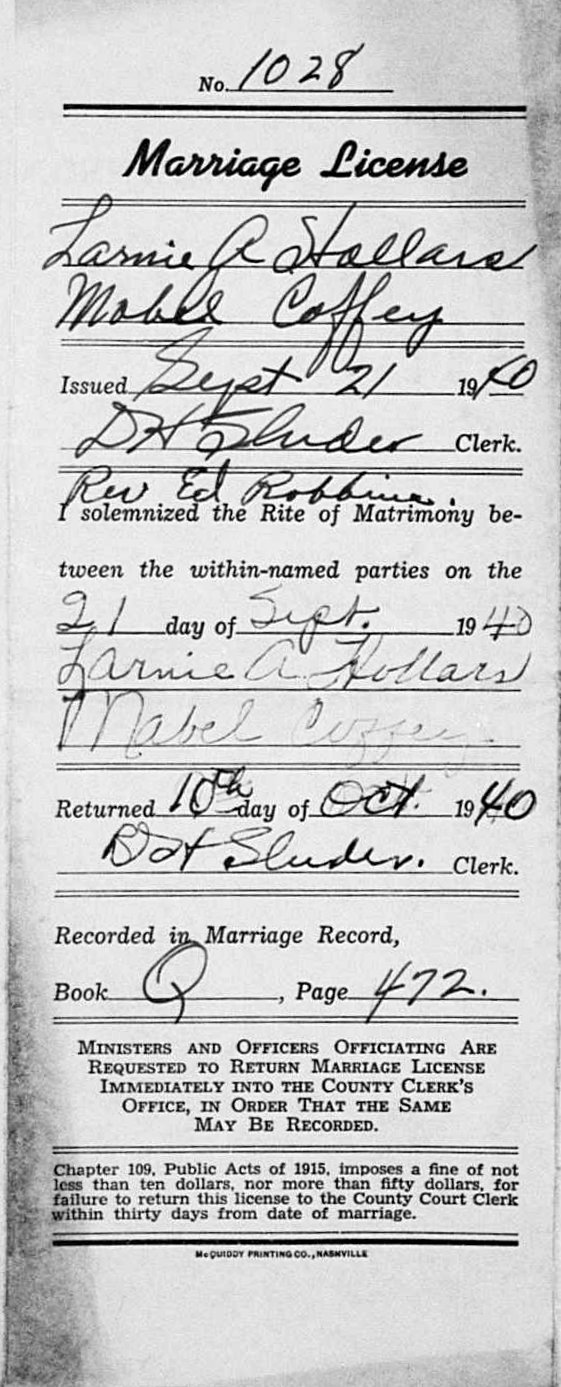 No. 1028
Marriage License
Larnie A Hollars
Mabel Coffey
Issued Sept 21 1940
D H Sluder Clerk.
Rev Ed Robbins.
I solemnized the Rite of Matrimony be-
tween the within-named parties on the
21 day of Sept. 1940
Larnie A. Hollars
Mabel Coffey
Returned 10th day of Oct. 1940
D H Sluder. Clerk.
Recorded in Marriage Record,
Book Q, Page 472.
MINISTERS AND OFFICERS OFFICIATING ARE
REQUESTED TO RETURN MARRIAGE LICENSE
IMMEDIATELY INTO THE COUNTY CLERK'S
OFFICE, IN ORDER THAT THE SAME
MAY BE RECORDED.
Chapter 109, Public Acts of 1915, imposes a fine of not
less than ten dollars, nor more than fifty dollars, for
failure to return this license to the County Court Clerk
within thirty days from date of marriage.
McQUIDDY PRINTING CO., NASHVILLE